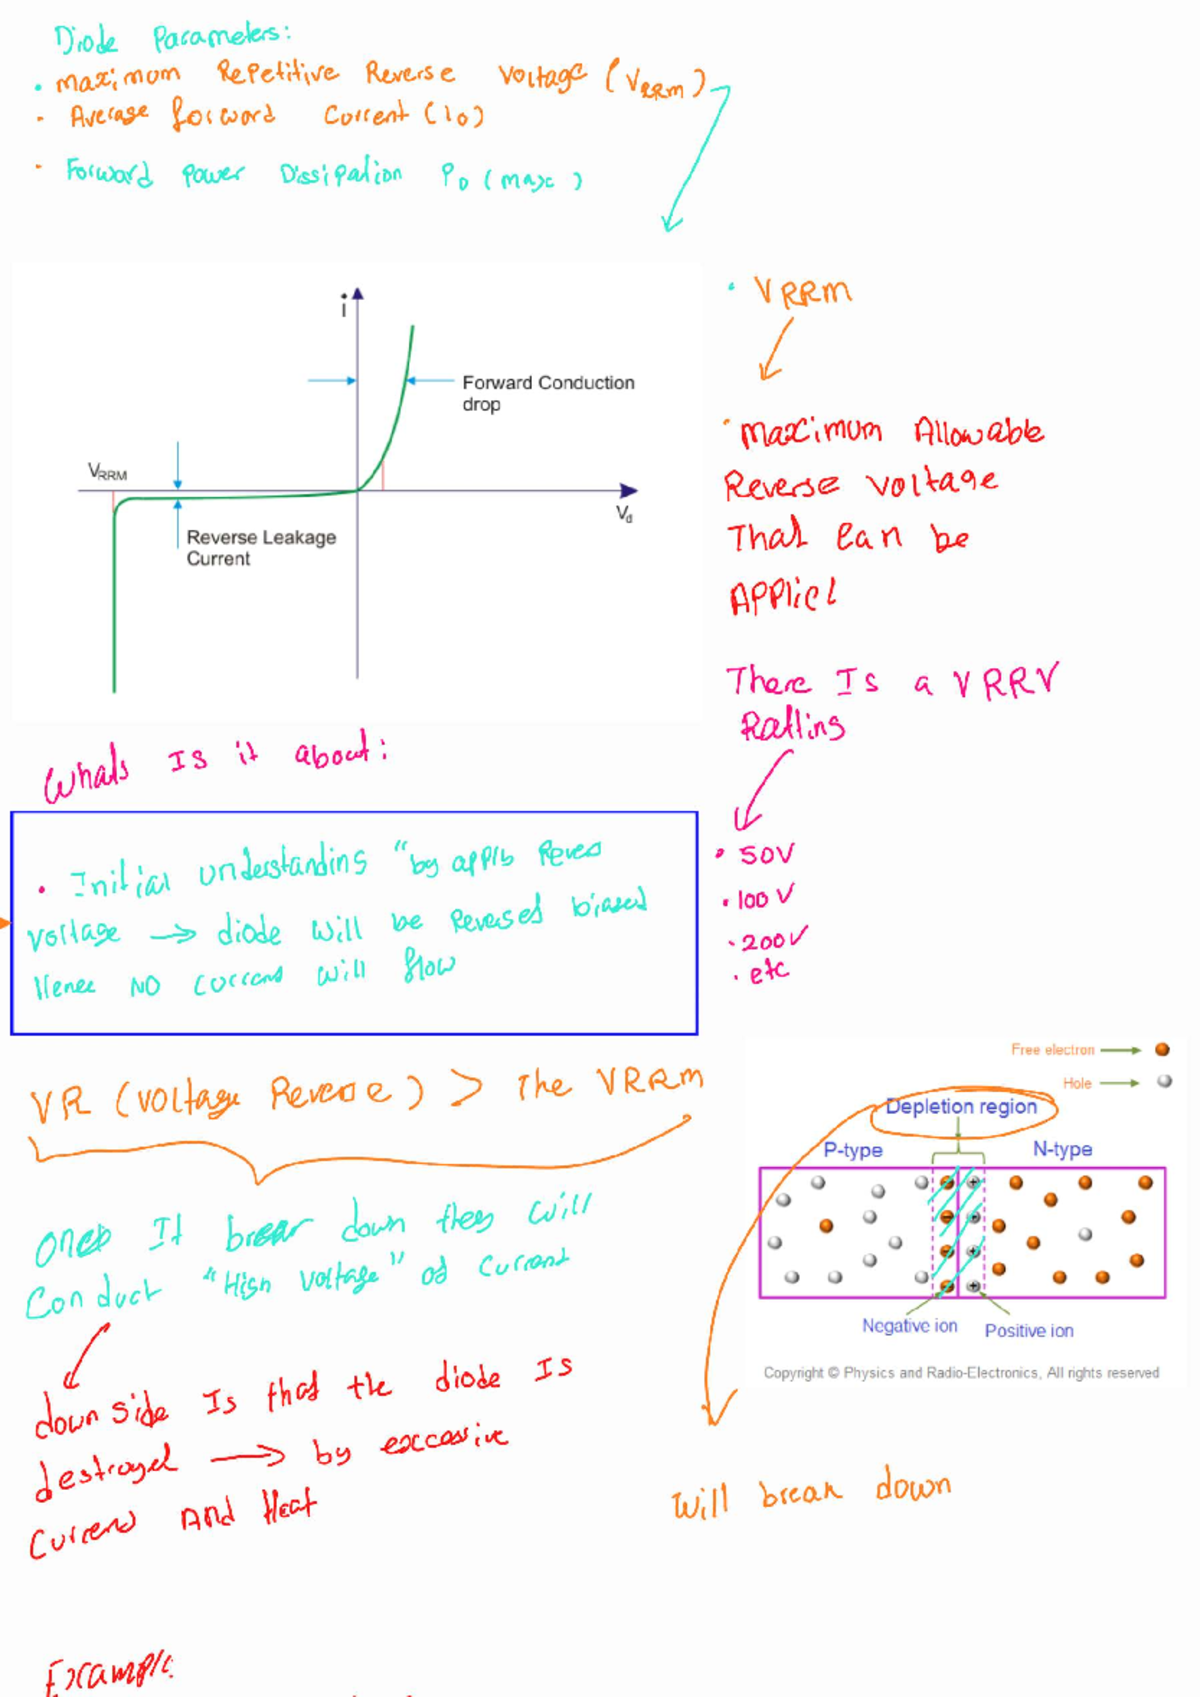 Diode Parameters:
• Maximum Repetitive Reverse Voltage (VRRM)
• Average forword Current (Io)
• Forward Power Dissipation PD (max)
i
Forward Conduction
drop
VRRM
Vd
Reverse Leakage
Current
• VRRM
• Maximum Allowable
Reverse voltage
That Can be
APPlied
There Is a VRRV
Ratting
• 50V
• 100V
• 200V
• etc
Whats Is it about:
• Initial understanding "by apply Revers
voltage → diode will be Reversed biased
Hence NO current will flow
VR (voltage Reverse) > The VRRM
Once It break down they will
Conduct "High voltage" of Current
down side Is that the diode Is
destroyed → by exccessive
Current And Heat
Free electron
Hole
Depletion region
P-type
N-type
Negative ion
Positive ion
Copyright © Physics and Radio-Electronics, All rights reserved
Will break down
Example: